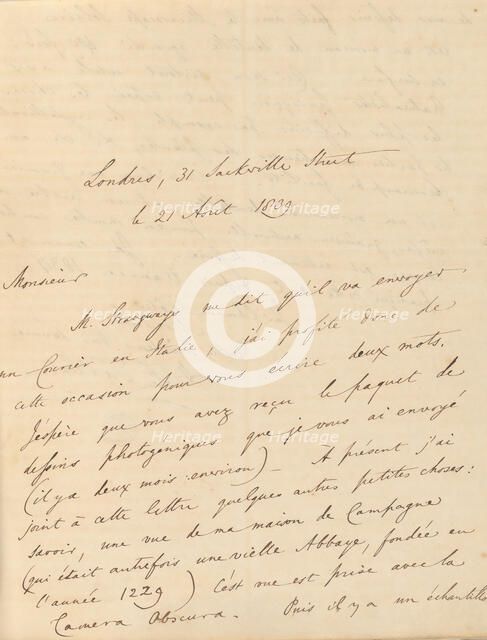 Londres, 31 Sackville Street
le 21 Août 1839
Monsieur
M. Strangways me dit qu'il va envoyer
un Courier en Italie, j'ai profité donc de
cette occasion pour vous écrire deux mots.
J'espère que vous avez reçu le paquet de
dessins photogeniques que je vous ai envoyé
(il y a deux mois environ) — A présent j'ai
joint à cette lettre quelques autres petites choses:
savoir, une vue de ma maison de Campagne
(qui était autrefois une vielle Abbaye, fondée en
l'année 1229) Cést vue est prise avec la
Camera Obscura. Puis il y a un échantillo
Heritage
Heritage
Heritage
Heritage
Heritage
Heritage
Heritage
Heritage